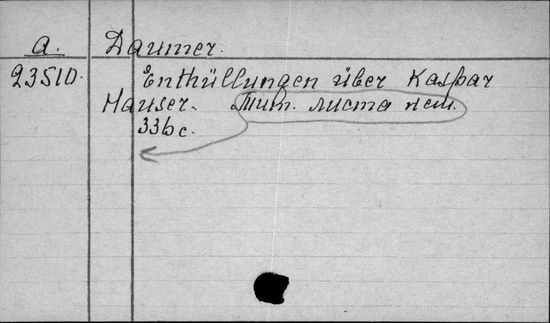 a. Daumer.
23510. Enthüllungen über Kaspar
Hauser. Тит. листа нет.
336 с.